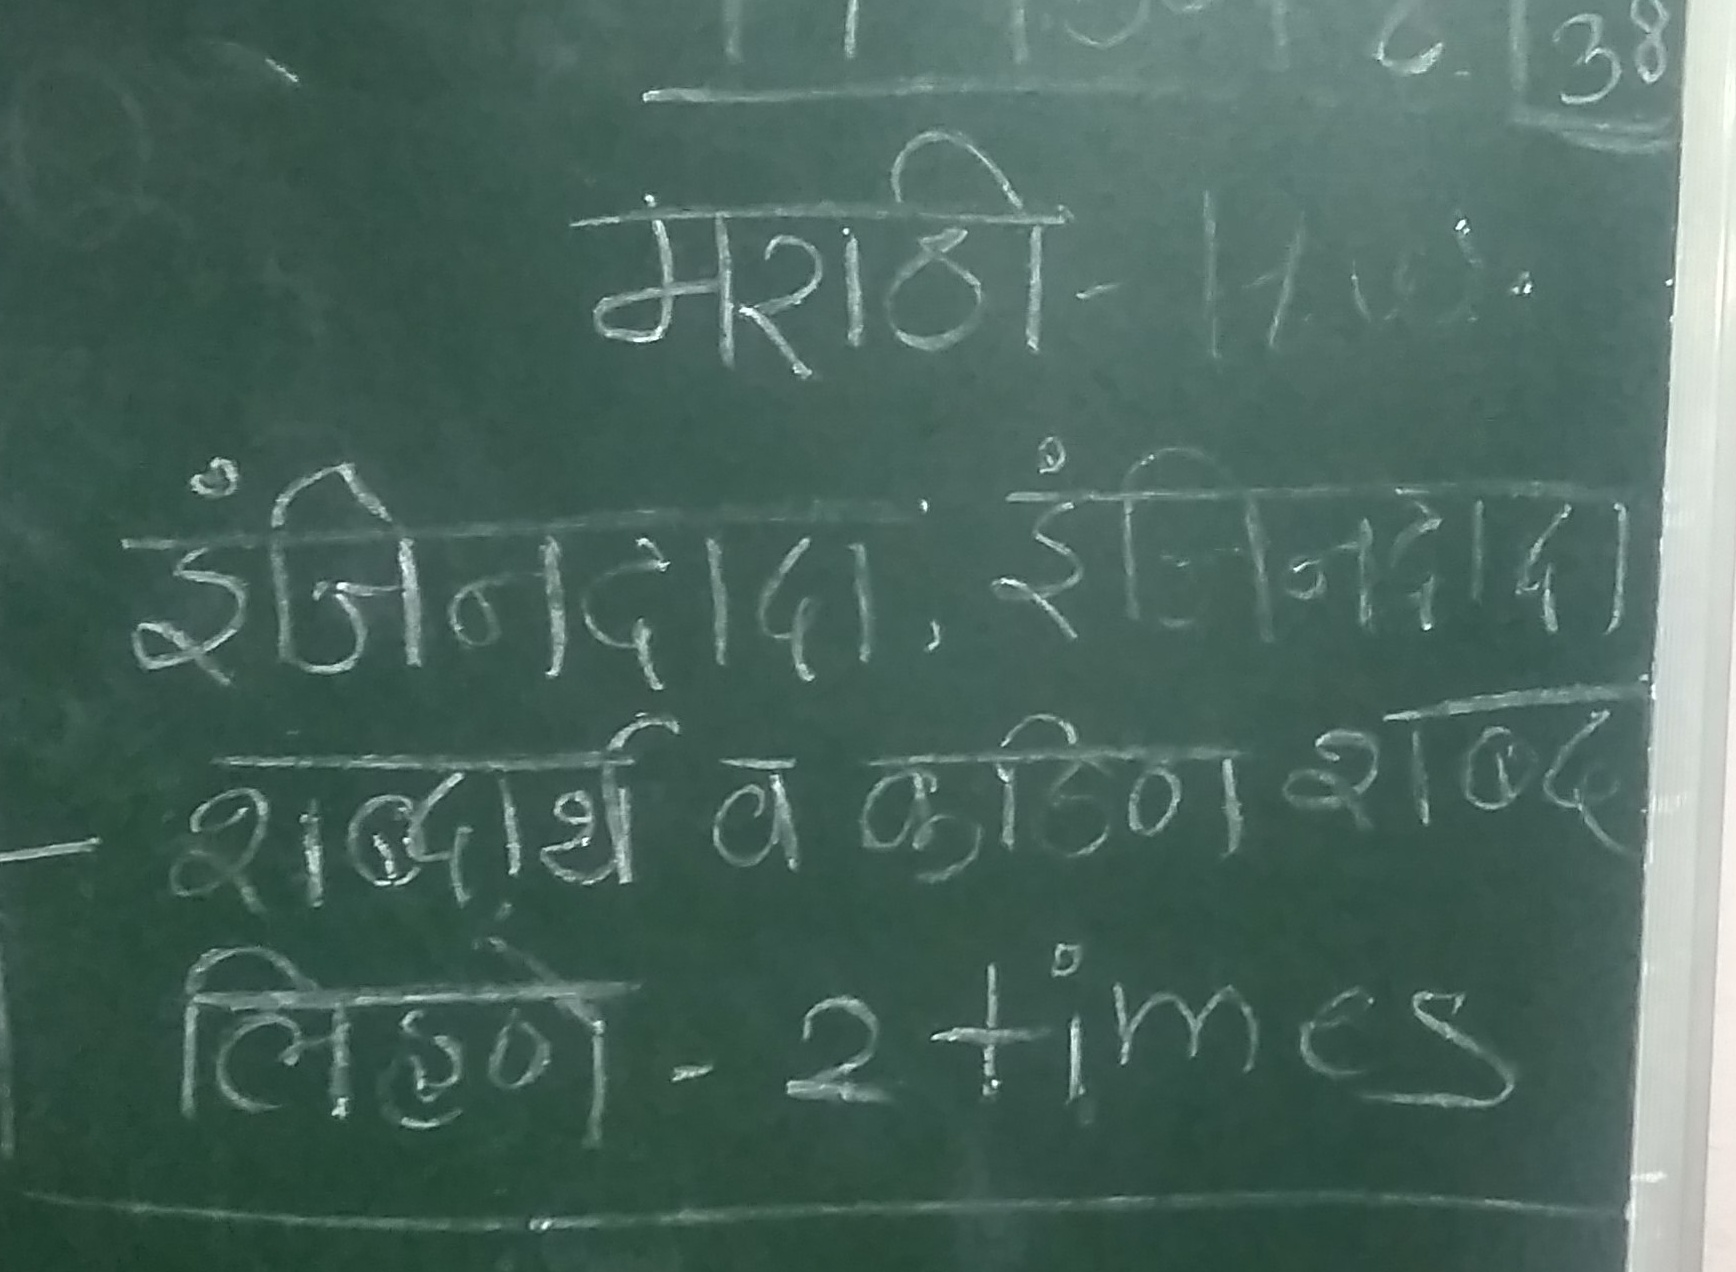 38
मराठी - H.W.
इंजिनदादा, इंजिनदादा
शब्दार्थ व कठिण शब्द
लिहणे - 2 times